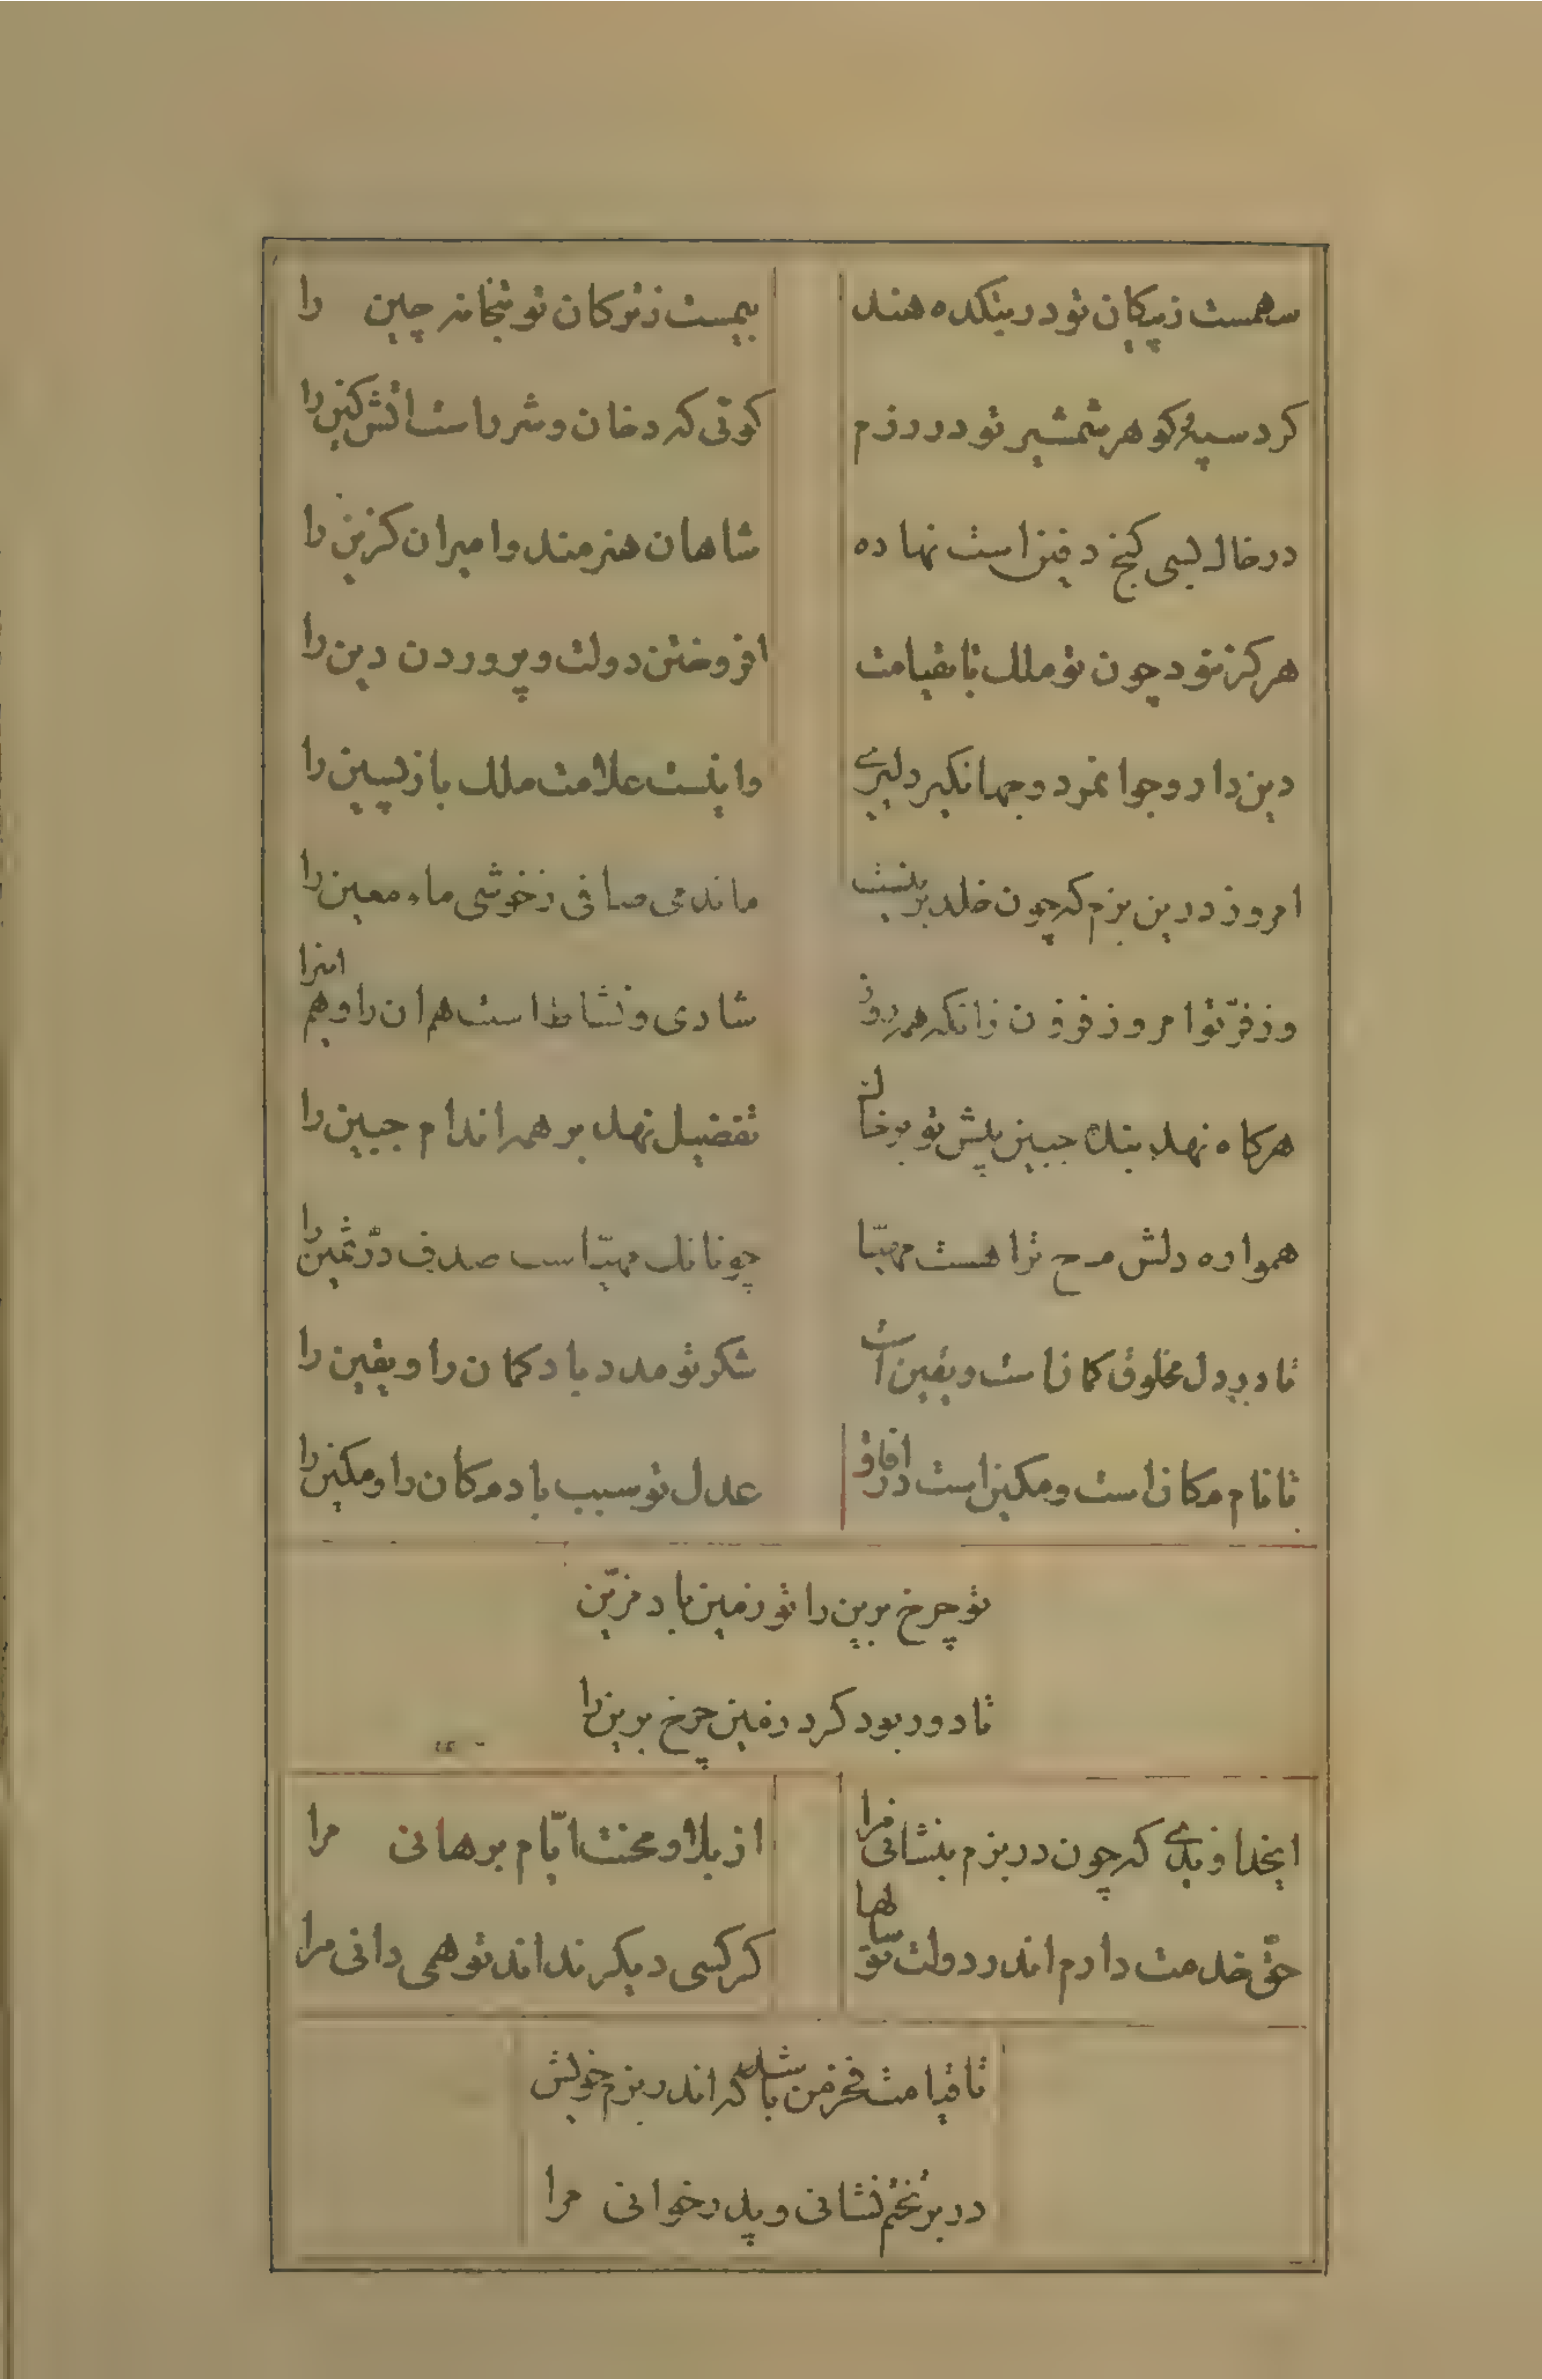 سهمست ز پیکان تو در بتکده هند
بیمست ز ترکان تو بتخانه چین را
کرد سیه گوهر شمشیر تو در رزم
گوئی که دخان و شرر است آتش کین را
در خاک بسی گنج دفین است نهاده
شاهان هنرمند و امیران گزین را
هرگز نبود چون تو ملک تا بقیامت
افروختن دولت و پروردن دین را
دین دار و جوانمرد و جهانگیر دلیری
واینست علامت ملک بازپسین را
امروز درین بزم که چون خلد برینست
ماند می صافی ز خوشی ماء معین را
وز فرّ تو امروز فزون زانکه همه روز
شادی و نشاط است هم آن را و هم اینرا
هرگاه نهد بنده جبین پیش تو بر خاک
تفضیل نهد بر همه اندام جبین را
همواره دلش مدح ترا هست مهیّا
چونانک مهیّاست صدف درّ ثمین را
تا در دل مخلوق گمان است و یقین است
شکر تو مدد باد گمان را و یقین را
تا نام مکان است و مکین است در آفاق
عدل تو سبب باد مکان را و مکین را
تو چرخ برین را تو زمین باد مزیّن
تا دور بود گرد زمین چرخ برین را
ایخداوندی که چون در بزم بنشانی مرا
از بلا و محنت ایّام برهانی مرا
حقّ خدمت دارم اندر دولت تو سالها
گر کسی دیگر نداند تو همی دانی مرا
تا قیامت فخر من باشد که اندر بزم خویش
در بر تختم نشانی و پدر خوانی مرا